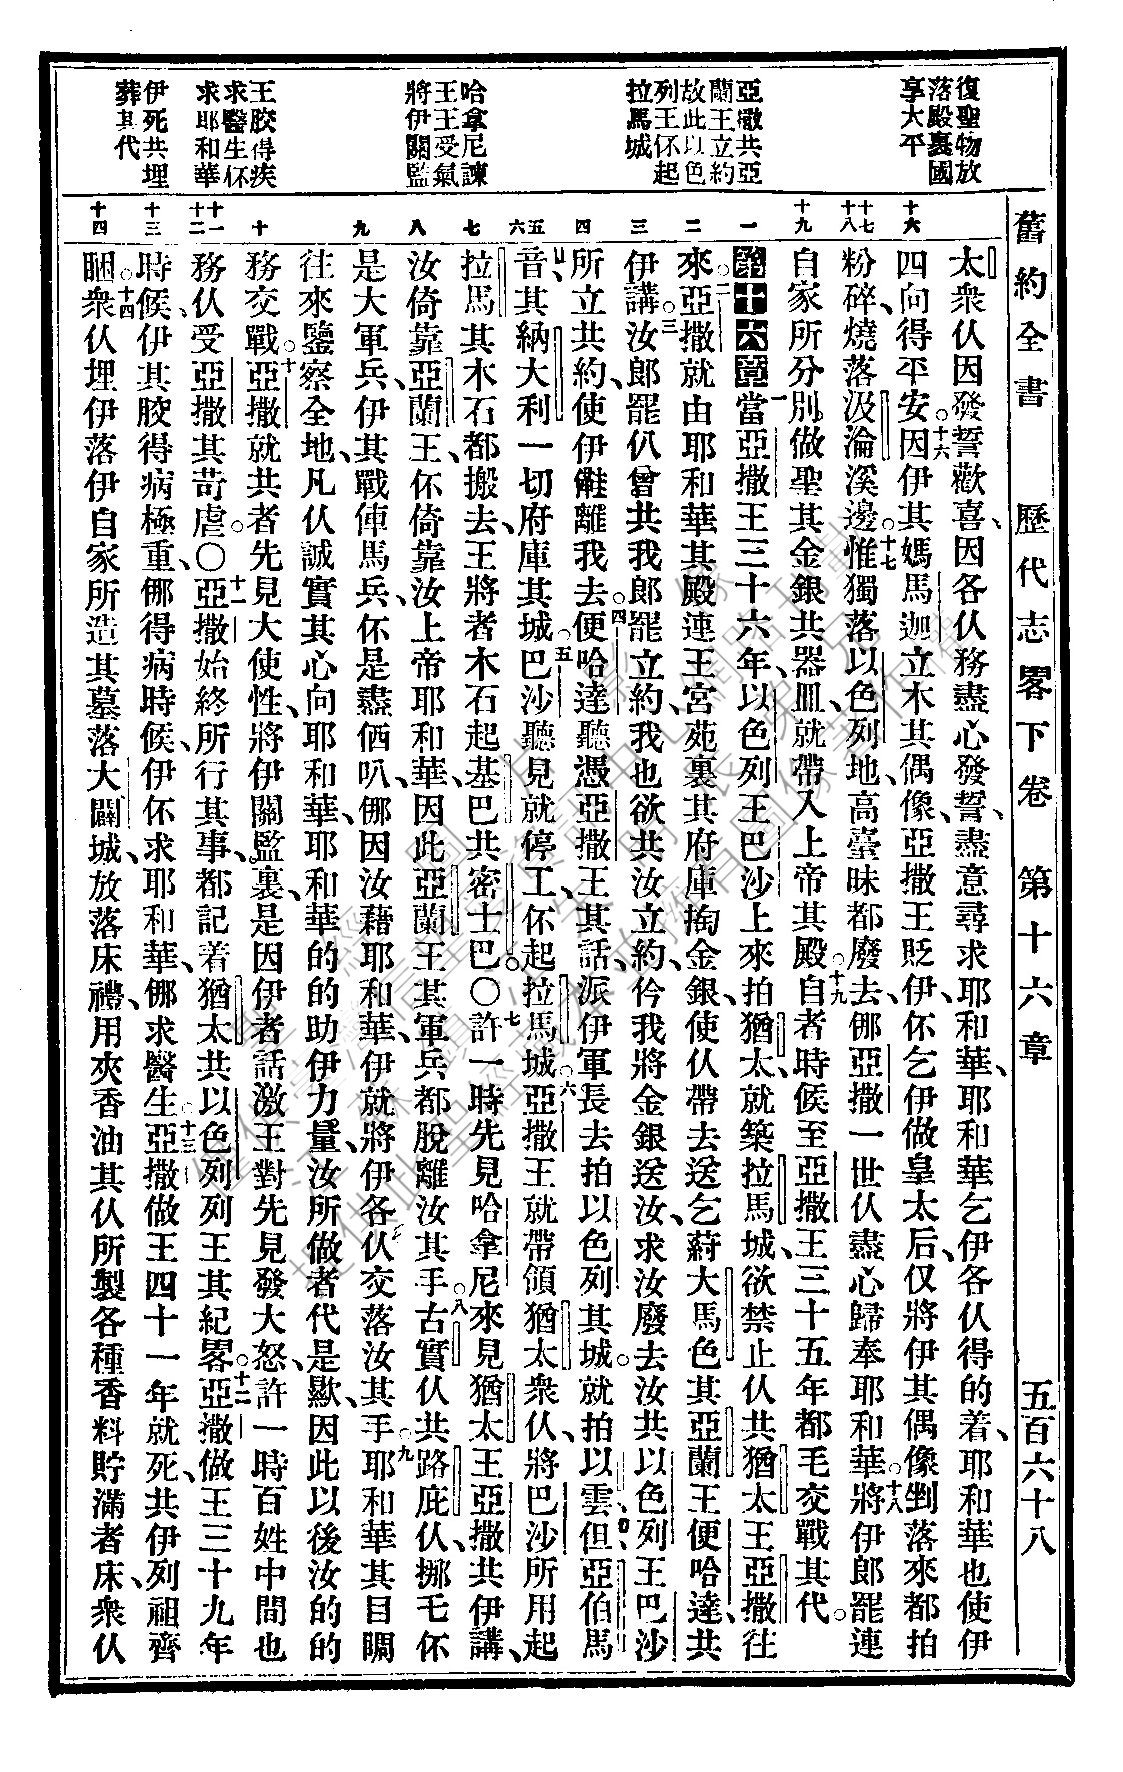 舊約全書　歷代志畧下卷　第十六章　五百六十八
復聖物放
落殿裏國
享大平
亞撒共亞
蘭王立約
故此以色
列王伓起
拉馬城
哈拿尼諫
王王受氣
將伊關監
王骹得疾
求醫生伓
求耶和華
伊死共埋
葬其代
十六
十七
十八
十九
一
二
三
四
五
六
七
八
九
十
十一
十二
十三
十四
太衆仈因發誓歡喜、因各仈務盡心發誓、盡意尋求耶和華、耶和華乞伊各仈得的着、耶和華也使伊
四向得平安。十六因伊其媽馬迦立木其偶像、亞撒王貶伊、伓乞伊做皇太后、仅將伊其偶像剉落來都拍
粉碎、燒落汲淪溪邊。十七惟獨落以色列地、高臺昧都廢去、㑚亞撒一世仈盡心歸奉耶和華。十八將伊郎罷連
自家所分別、做聖其金銀共器皿、就帶入上帝其殿。十九自者時候至亞撒王三十五年都乇交戰其代。
第十六章一當亞撒王三十六年、以色列王巴沙上來拍猶太、就築拉馬城、欲禁止仈共猶太王亞撒往
來。二亞撒就由耶和華其殿連王宮苑裏其府庫掏金銀、使仈帶去送乞蒔大馬色其亞蘭王便哈達、共
伊講、三汝郎罷仈曾共我郎罷立約、我也欲共汝立約、仱我將金銀送汝、求汝廢去汝共以色列王巴沙
所立共約、使伊離我去。四便哈達聽憑亞撒王其話、派伊軍長去拍以色列其城。就拍以雲、但、亞伯馬
音、其納大利一切府庫其城。五巴沙聽見就停工、伓起拉馬城。六亞撒王就帶領猶太衆仈、將巴沙所用起
拉馬其木石都搬去、王將者木石起基巴共密士巴。〇七許一時先見哈拿尼來見猶太王亞撒共伊講、
汝倚靠亞蘭王、伓倚靠汝上帝耶和華、因此亞蘭王其軍兵都脫離汝其手。八古實仈共路庇仈、挪乇伓
是大軍兵、伊其戰俥馬兵、伓是盡価叭、㑚因汝藉耶和華、伊就將伊各仈交落汝其手。九耶和華其目睭
往來鑒察全地、凡仈誠實其心向耶和華、耶和華的的助伊力量、汝所做者代是歞、因此以後汝的的
務交戰。十亞撒就共者先見大使性、將伊關監裏、是因伊者話激王對先見發大怒、許一時百姓中間也
務仈受亞撒其苛虐。〇十一亞撒始終所行其事、都記着猶太共以色列列王其紀畧。十二亞撒做王三十九年
時候、伊其骹得病極重、㑚得病時候、伊伓求耶和華、㑚求醫生。十三亞撒做王四十一年就死、共伊列祖齊
睏。十四衆仈埋伊落伊自家所造其墓落大闢城、放落床禮、用夾香油其仈所製各種香料貯滿者床、衆仈